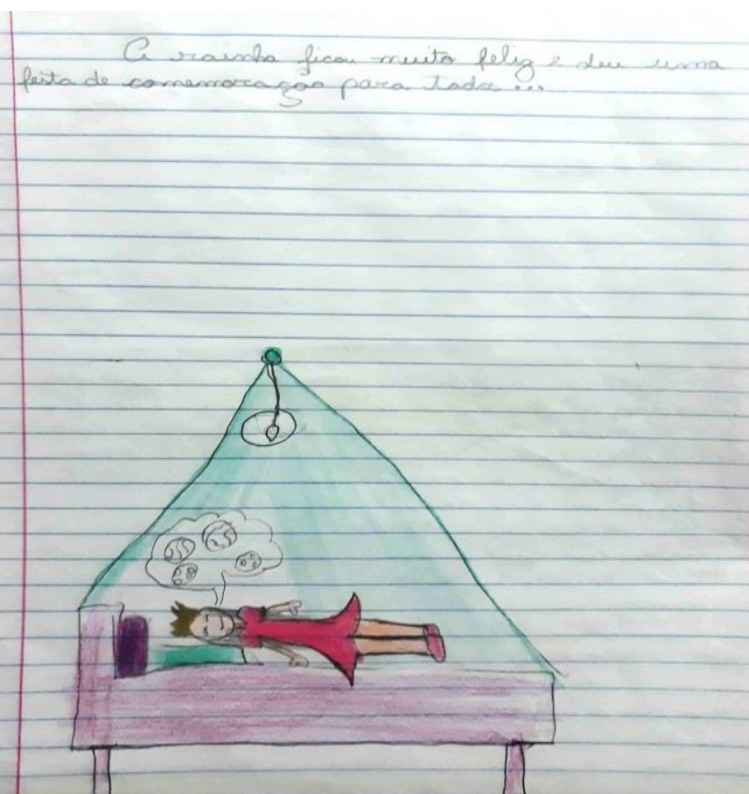 A rainha ficou muito feliz e deu uma
feita de comemoração para toda ...